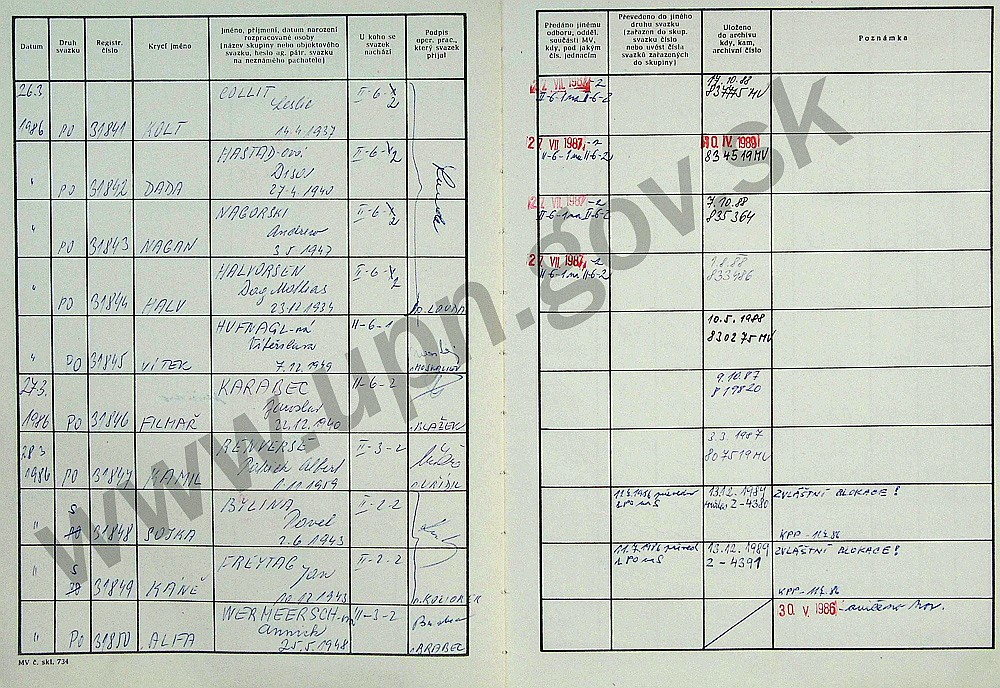 Datum
Druh svazku
Registr. číslo
Krycí jméno
Jméno, příjmení, datum narození
rozpracované osoby
(název skupiny nebo objektového
svazku, heslo ag. pátr. svazku
na neznámého pachatele)
U koho se
svazek
nachází
Podpis
oper. prac.,
který svazek
přijal
Předáno jinému
odboru, odděl.
součásti MV,
kdy, pod jakým
čís. jednacím
Převedeno do jiného
druhu svazku
(zařazen do skup.
svazku číslo
nebo uvést čísla
svazků zařazených
do skupiny)
Uloženo
do archivu
kdy, kam,
archivní číslo
Poznámka
26.3
COLLIT
II-6-2
27. VII. 1987 -2
17.10.88
Leslie
II-6-1 na II-6-2
83775 MV
1986 PO 31841 KOLT
14.4.1937
HASTAD-ová
II-6-2
27. VII. 1987 -2
10. IV. 1989
II-6-1 na II-6-2
834519 MV
" PO 31842 DADA
27.4.1940
NAGORSKI
II-6-2
27. VII. 1987 -2
7.10.88
Andrew
II-6-1 na II-6-2
835364
" PO 31843 NAGAN
3.5.1947
HALVORSEN
II-6-2
27. VII. 1987 -2
1.8.88
Dag
II-6-1 na II-6-2
833486
" PO 31844 HALV
23.12.1934
LOUDA
HUFNAGL-ová
II-6-1
10.5.1988
Vítězslava
830275 MV
" PO 31845 VÍTEK
7.12.1949
27.3.
KARABEC
II-6-2
9.10.87
Jaroslav
819820
1986 PO 31846 FILMAŘ
22.12.1940
BLAŽEK
28.3
RENVERSE
II-3-2
3.3.1987
Patrick Albert
807519 MV
1986 PO 31847 KAMIL
1.11.1959
BYLINA
II-2-2
13.12.1989
ZVLÁŠTNÍ BLOKACE!
S
Pavel
Z-4380
" 31848 SOJKA
2.6.1943
KPP - 11.7.86
FREYTAG
II-2-2
11.7.1986 převed
13.12.1989
ZVLÁŠTNÍ BLOKACE!
S
Jan
z PO na S
Z-4391
" 31849 KÁNĚ
10.12.1943
KPP - 11.7.86
WERMEERSCH-
II-3-2
30. V. 1986
Annick
" PO 31850 ALFA
25.5.1948
BRABEC
MV č. skl. 734
www.upn.gov.sk